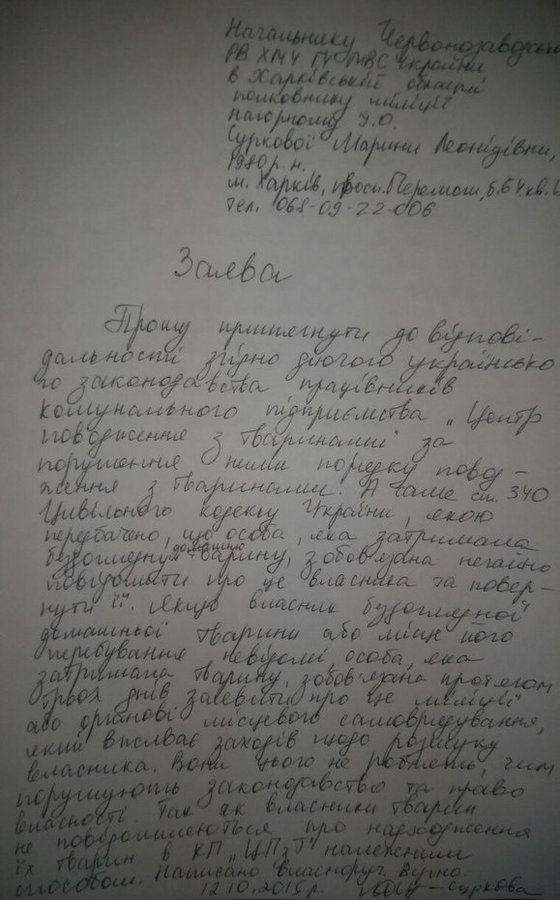 Начальнику Червонозаводсько
РВ ХМУ ГУМВС України
в Харківській області
полковнику міліції
Нагорному
Суркової Марини Леонідівни,
1980 р. н.
м. Харків, просп. Перемоги, б. 64 кв.
тел. 068-09-22-006
Заява
Прошу притягнути до відпові-
дальності згідно діючого українсько
го законодавства працівників
комунального підприємства „Центр
поводження з тваринами" за
порушення ними порядку повод-
ження з тваринами. А саме ст. 340
Цивільного кодексу України, якою
передбачено, що особа, яка затримала
бездоглядну домашню тварину, зобов'язана негайно
повідомити про це власника та повер-
нути її. Якщо власник бездоглядної
домашньої тварини або місце його
перебування невідомі, особа, яка
затримала тварину, зобов'язана протягом
трьох днів заявити про це міліції
або органові місцевого самоврядування,
який вживає заходів щодо розшуку
власника. Вони цього не роблять, чим
порушують законодавство та право
власності. Так як власники тварин
не повідомляються про надходження
їх тварин в КП „ЦПзТ" належним
способом. Написано власноруч. Вірно.
12.10.2015 р. Суркова